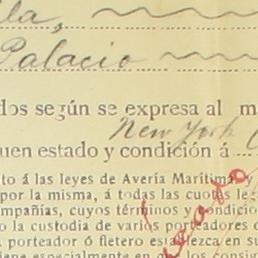 lla,
Palacio
dos según se expresa al m
New York
uen estado y condición á
to á las leyes de Averia Marítima, y
por la misma, á todas las cuotas leg
mpañías, cuyos términos y condicio
o la custodia de varios porteadores
porteador ó fletero establezca en su
iene especialmente en